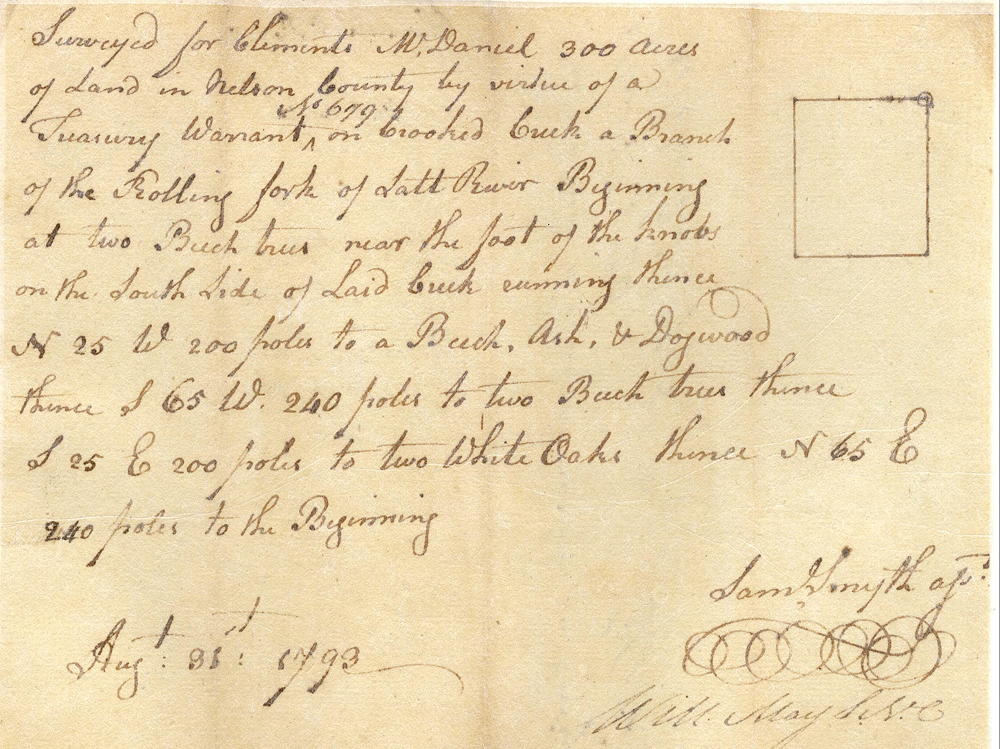 Surveyed for Clements McDaniel 300 acres
of Land in Nelson County by virtue of a
Treasury Warrant ^ No 679 on Crooked Creek a Branch
of the Rolling fork of Salt River Beginning
at two Beech trees near the foot of the knobs
on the South Side of Said Creek running thence
N 25 W 200 poles to a Beech, Ash, & Dogwood
thence S 65 W. 240 poles to two Beech trees thence
S 25 E 200 poles to two White Oaks thence N 65 E
240 poles to the Beginning
Saml Smyth asst
Augt: 31st: 1793
Will. May S.N.C